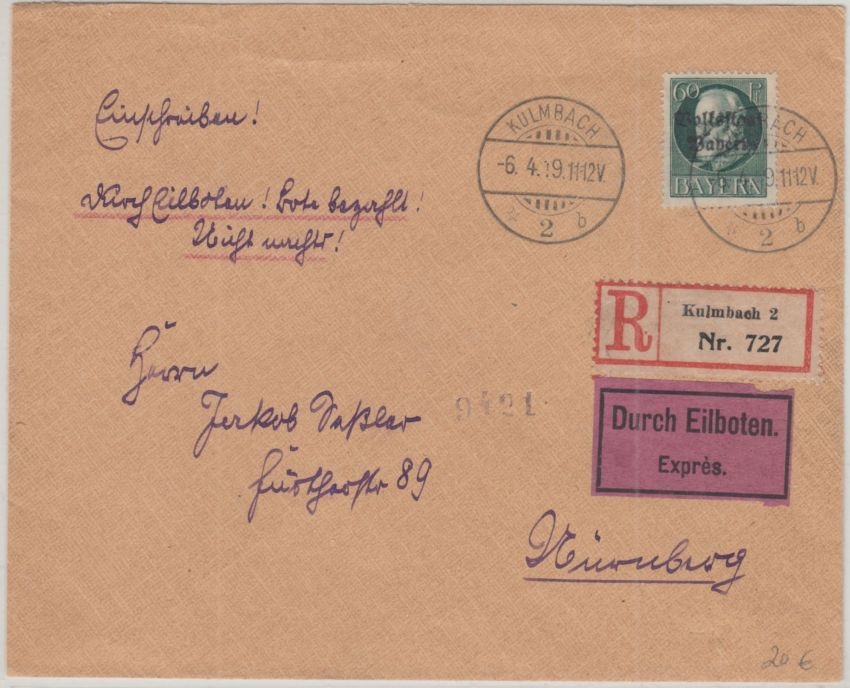 Einschreiben!
Durch Eilboten! Bote bezahlt!
Nicht nachts!
KULMBACH
-6. 4. 19. 11-12V.
2 b
60 Pf
Volksstaat
Bayern
BAYERN
KULMBACH
-6. 4. 19. 11-12V.
2 b
R
Kulmbach 2
Nr. 727
Durch Eilboten.
Exprès.
Herrn
Jakob Seßler
Fürtherstr 89
9421
Nürnberg
20 €